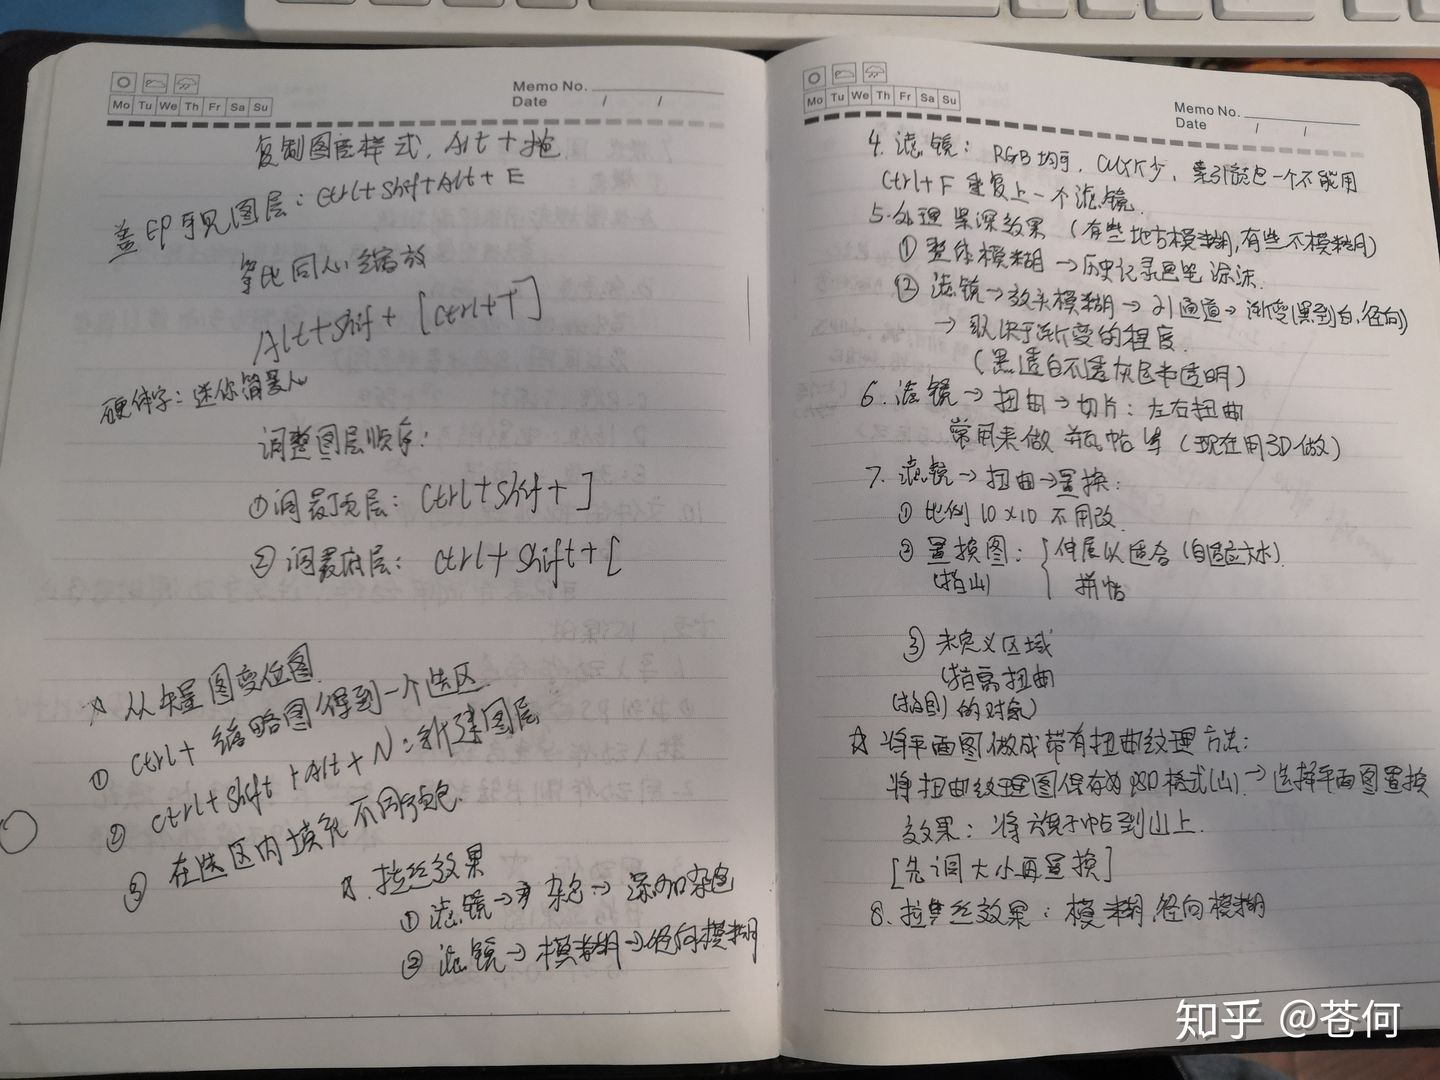 Mo Tu We Th Fr Sa Su
Memo No.
Date / /
复制图层样式. Alt+拖
盖印可见图层: Ctrl+Shift+Alt+E
等比同心缩放
Alt+Shif+[Ctrl+T]
硬体字: 迷你简
调整图层顺序:
①调最顶层: Ctrl+Shif+]
②调最底层: Ctrl+Shift+[
☆ 从矢量图变位图
① Ctrl+缩略图得到一个选区.
② Ctrl+Shift+Alt+N: 新建图层
③ 在选区内填充不同颜色.
☆. 拉丝效果
① 滤镜→杂色→添加杂色
② 滤镜→模糊→径向模糊
Mo Tu We Th Fr Sa Su
Memo No.
Date / /
4. 滤镜: RGB均可, CMYK少, 索引颜色一个不能用
Ctrl+F 重复上一个滤镜.
5. 处理景深效果 (有些地方模糊,有些不模糊)
① 整体模糊→历史记录画笔涂抹.
② 滤镜→镜头模糊→ 通道→渐变(黑到白,径向)
→取决于渐变的程度.
(黑透白不透灰色半透明)
6. 滤镜→扭曲→切片: 左右扭曲
常用来做 瓶帖 (现在用3D做)
7. 滤镜→扭曲→置换:
① 比例10×10不用改.
② 置换图: 伸展以适合(自适应大小)
(指山) 拼帖
③ 未定义区域
(指需扭曲
的对象)
☆ 将平面图做成带有扭曲纹理方法:
将扭曲纹理图保存为PSD格式(山).→选择平面图置换
效果: 将旗子帖到山上.
[先调大小再置换]
8. 拉丝效果: 模糊,径向模糊
知乎 @苍何